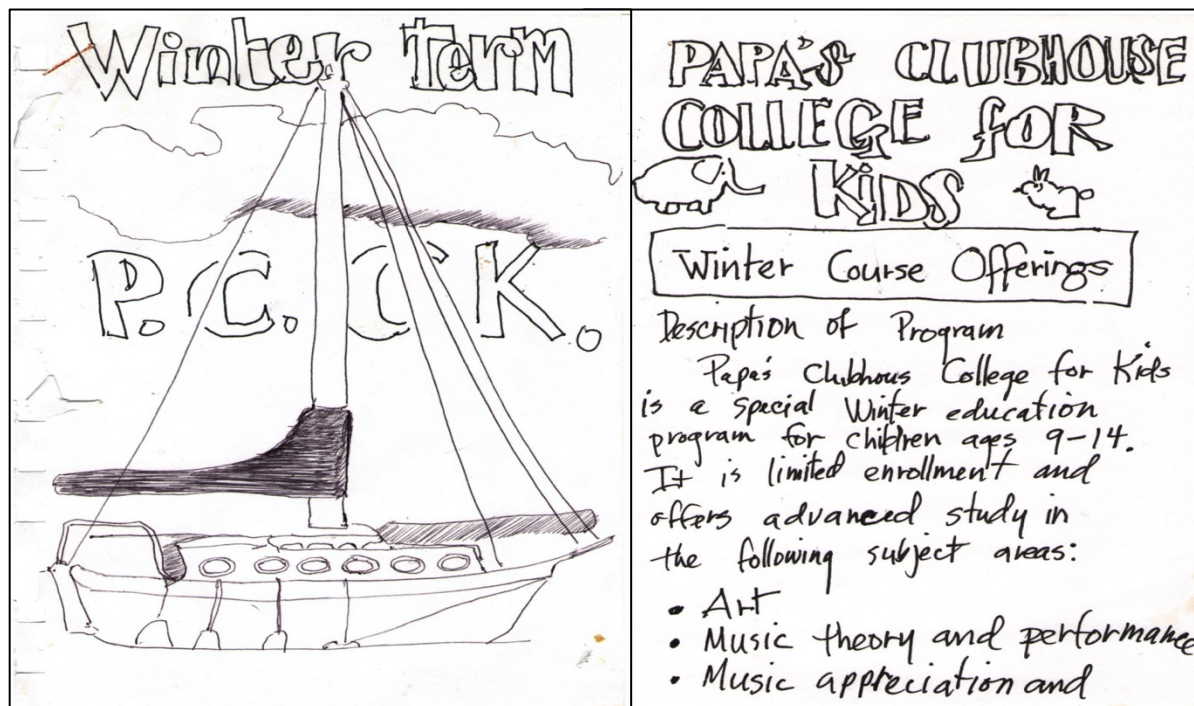 Winter Term
P.C.C.K.
PAPA'S CLUBHOUSE
COLLEGE for
KiDS
Winter Course Offerings
Description of Program
Papa's Clubhous College for Kids
is a special Winter education
program for children ages 9-14.
It is limited enrollment and
offers advanced study in
the following subject areas:
• Art
• Music theory and performance
• Music appreciation and